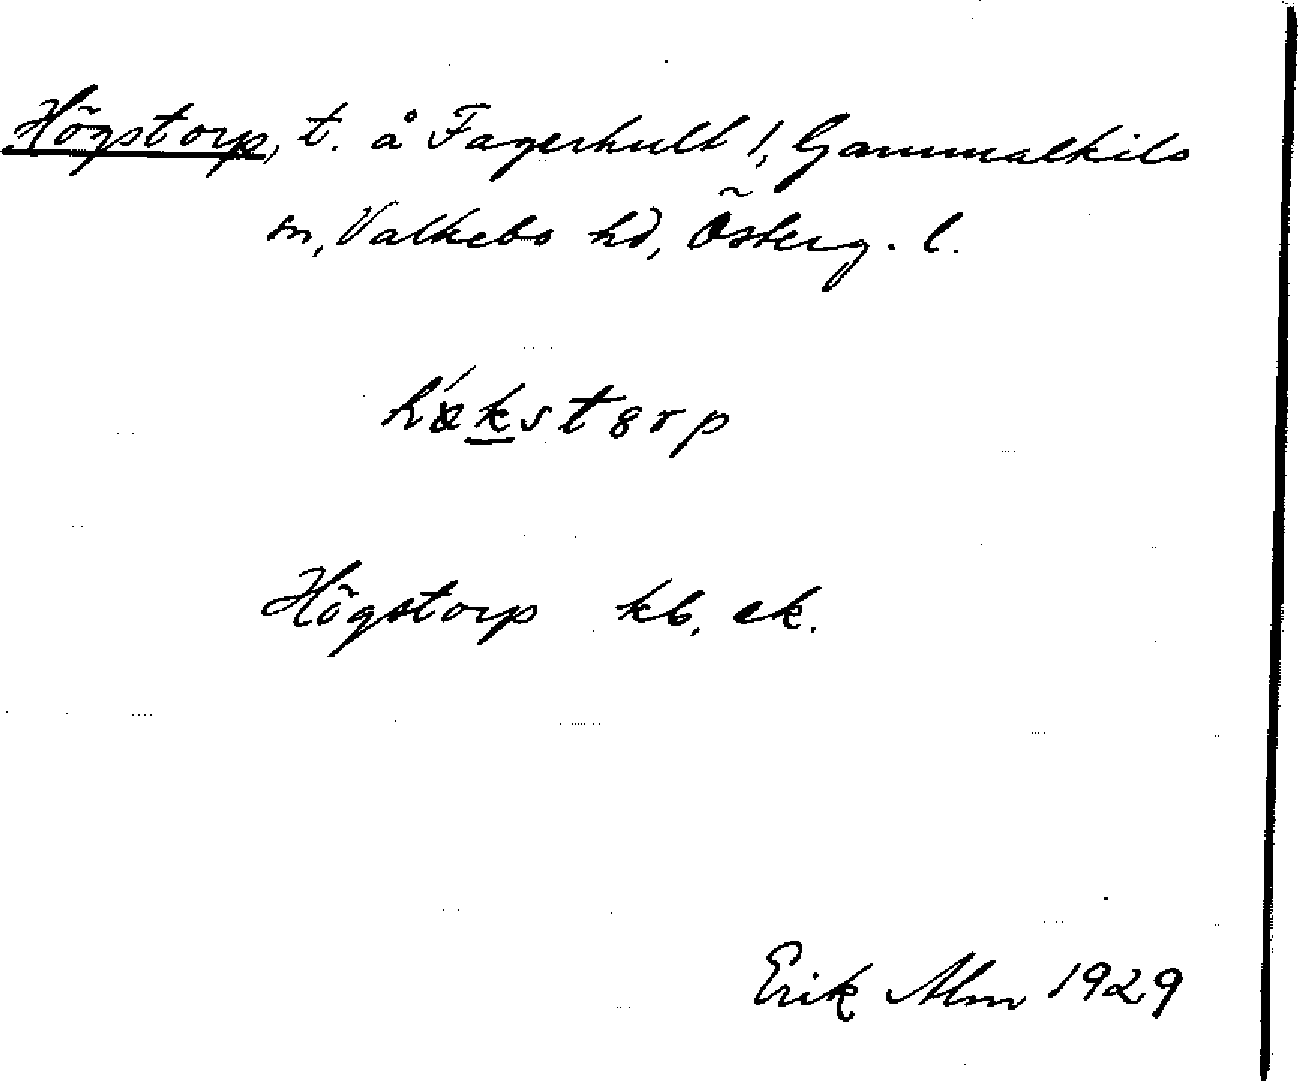 Högstorp, t. å Fagerhult 1, Gammalkils
sn, Valkebo hd, Österg. l.
Högstorp kb. ek.
Erik Alm 1929